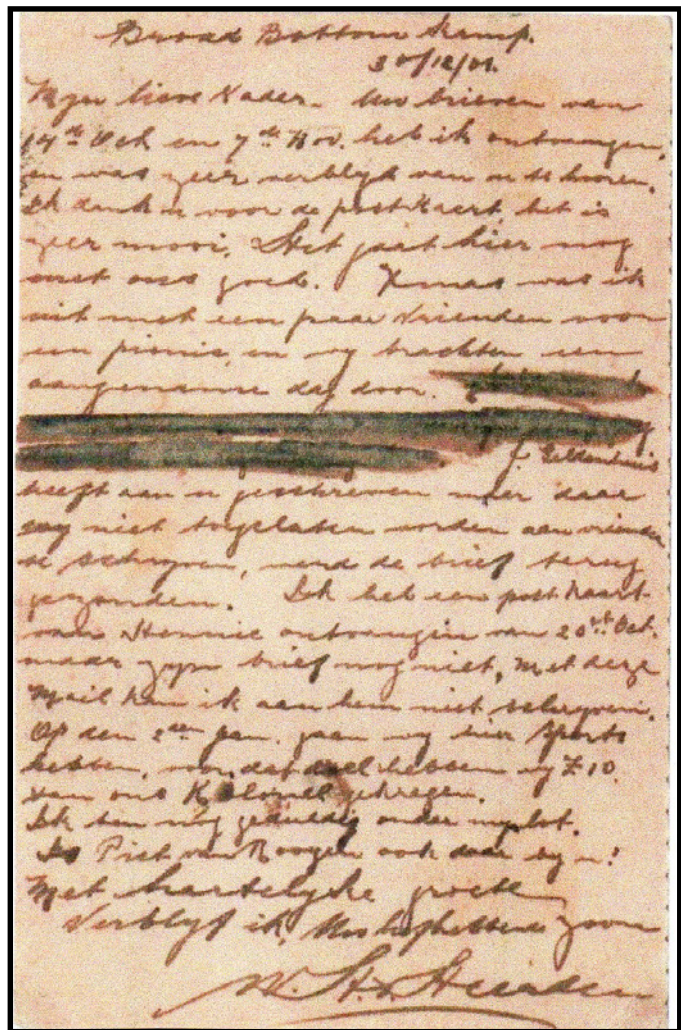 Broad Bottom Kamp.
30/12/01.
Myn lieve Vader. Uw brieven van
14de Oct en 7de Nov. heb ik ontvangen,
en was zeer verblyd van u te hooren.
Ik dank u voor de postkaart, het is
zeer mooi. Het gaat hier nog
met ons goed. Xmas was ik
uit met een paar vrienden voor
een picnic, en wy brachten een
aangename dag door.
J. Geldenhuis
heeft aan u geschreven maar daar
wy niet togelaten worden aan vrienden
te schryven, werd de brief terug
gezonden. Ik heb een postkaart
van Hennie ontvangen van 20ste Oct.
maar zyn brief nog niet, met deze
Mail kan ik aan hem niet schryven.
Op den 2de Jan. gaan wy hier sports
hebben, voor dat doel hebben wy £10
van ons Kolonel gekregen.
Ik ben nog geduldig onder myn lot.
Is Piet van Rooyen ook daar by u?
Met hartelyke groete
Verblyf ik, Uw liefhebbende zoon